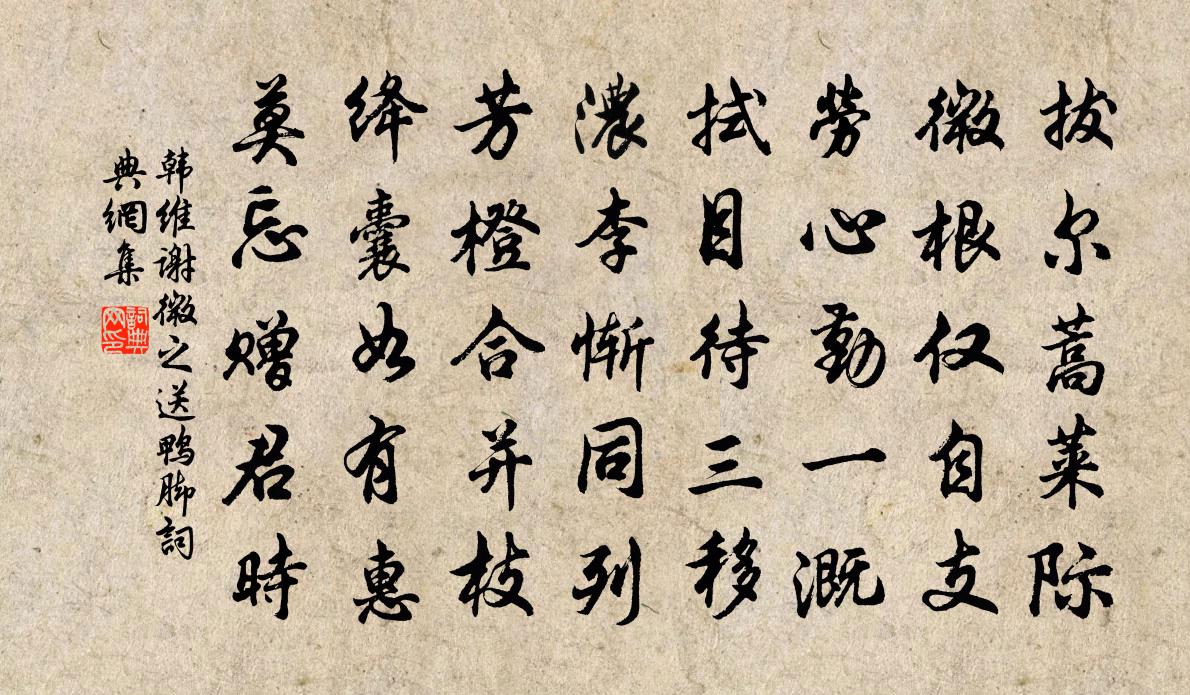 拔尔蒿莱际
微根仅自支
劳心勤一溉
拭目待三移
浓李惭同列
芳橙合并枝
绛囊如有惠
莫忘赠君時
韩维谢微之送鸭脚詞
典網集
詞典网印